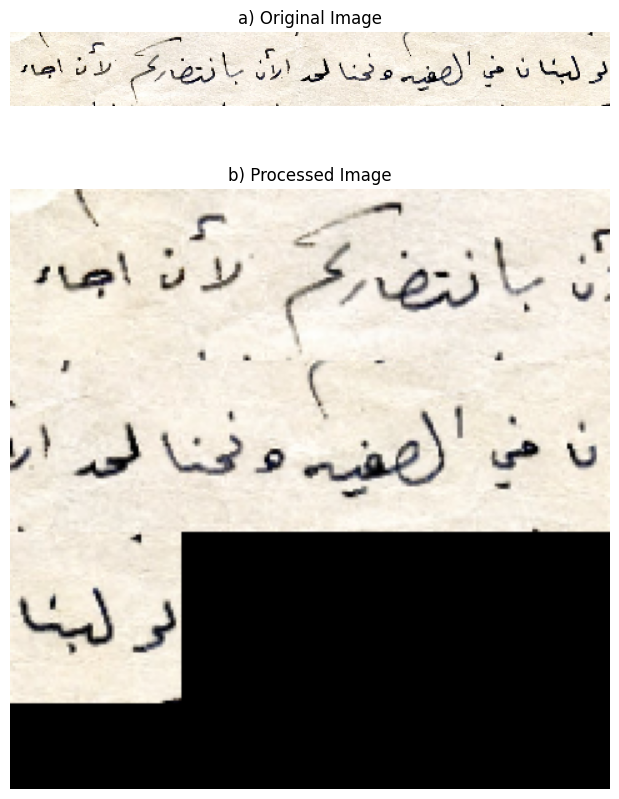 a) Original Image
لو لبنان في الصفيه ونحنا لحد الأن بانتضاركم لأن اجاء
b) Processed Image
أن بانتضاركم لأن اجاء
ن في الصفيه ونحنا لحد الا
لو لبنا